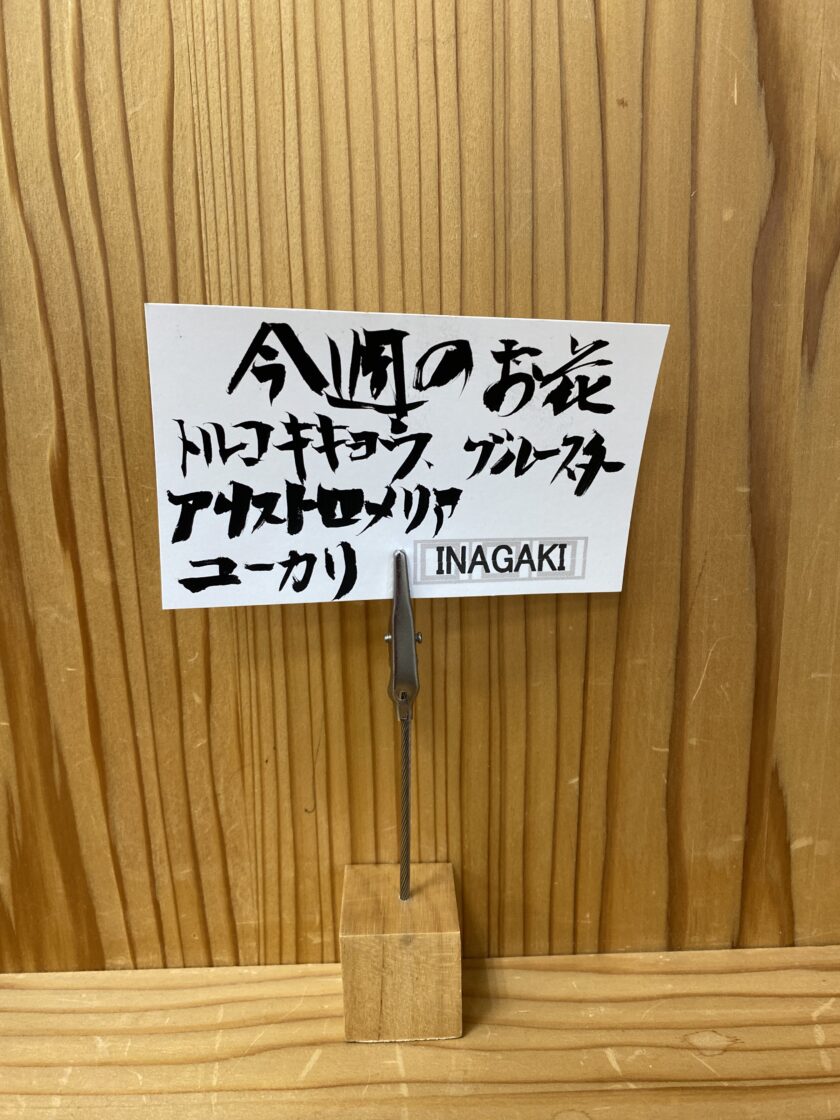 今週のお花
トルコキキョウ、ブルースター
アリストロメリア
ユーカリ
INAGAKI